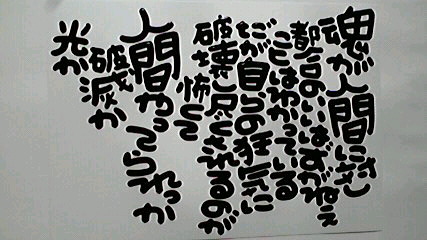 魂が人間にさし
都合のいいはずがねぇ
ことはわかっている
だが自らの狂気に
破壊し尽くされるのが
怖くて
人間やってられっか
破滅か
光か